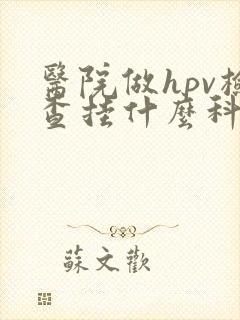 醫院做hpv檢
查挂什麼科
蘇文歡